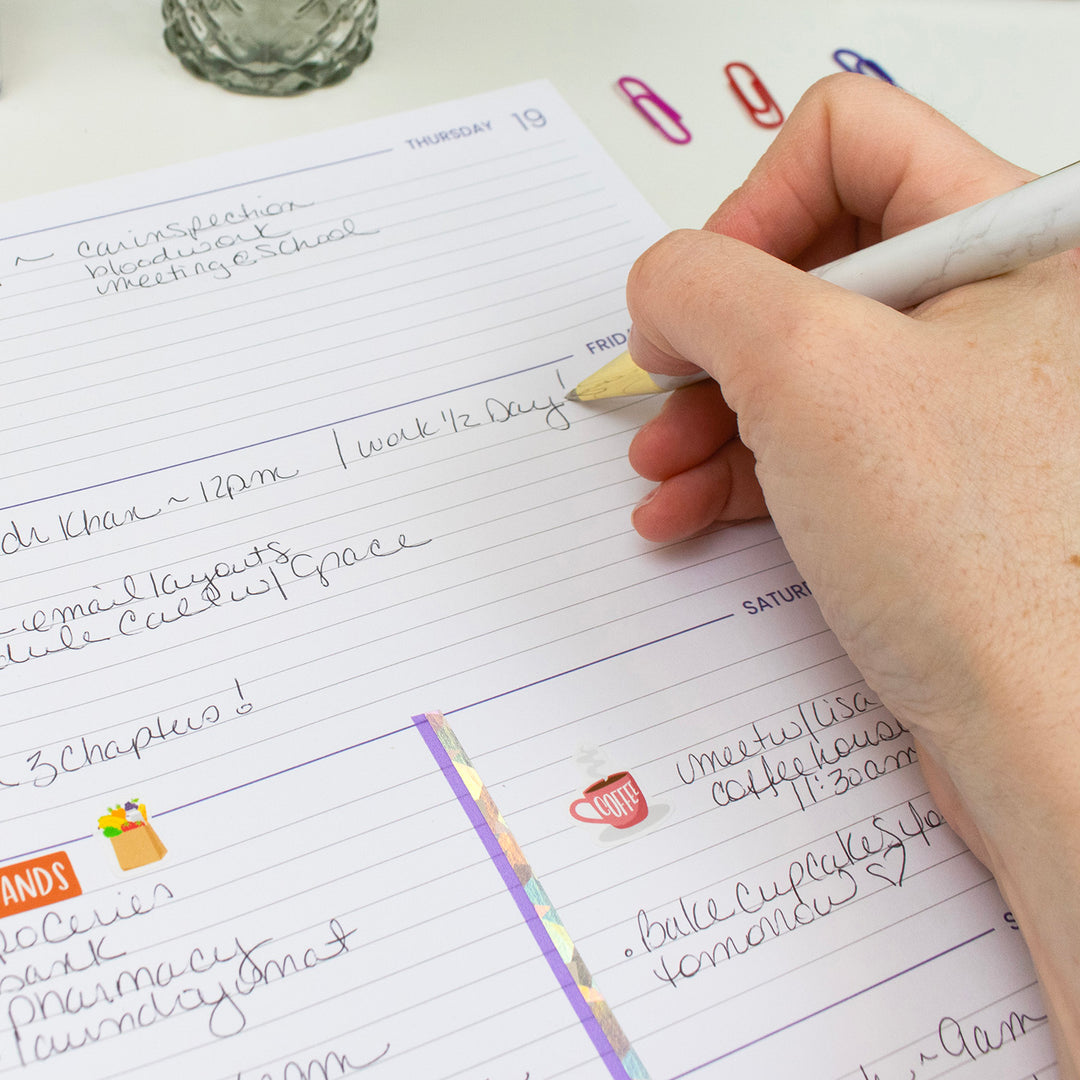 THURSDAY 19
~ car inspection
bloodwork
meeting @ school
FRID
dr Khan ~ 12pm | work 1/2 Day!
email layouts
dule call w/ Grace
3 Chapters!
SATUR
meet w/ Lisa
coffeehouse
11:30am
COFFEE
• Bake Cupcakes fo
tomorrow ♡
ANDS
roceries
bank
pharmacy
laundry mat
S
~ 9am
am